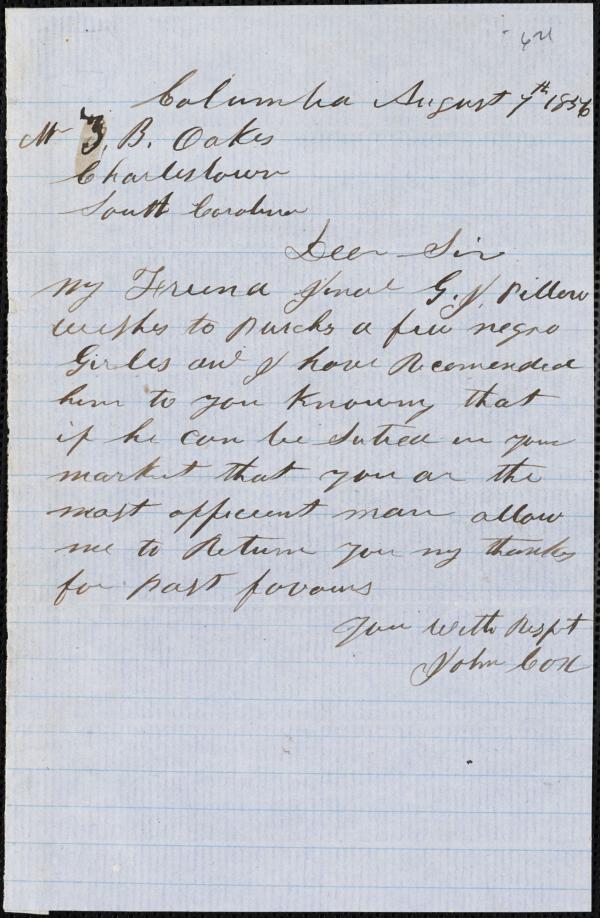 Columbia August 7th 1856
Mr Z. B. Oakes
Charlestown
South Carolina
Dear Sir
My Friend Jinal G. J. Pillow
wishes to purchs a few negro
Girles and I have Recomended
him to you Knowing that
if he can be Sutied in your
market that you ar the
most afficient man allow
me to Return you my thanks
for past favours
You With Respt
John Cox